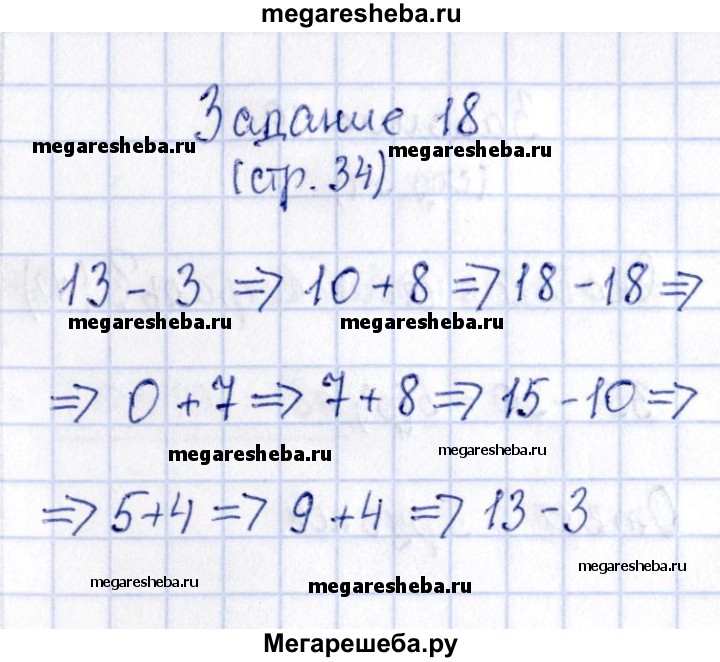 megaresheba.ru
Задание 18
megaresheba.ru
megaresheba.ru
(стр. 34)
13 - 3 => 10 + 8 => 18 - 18 =>
megaresheba.ru
megaresheba.ru
=> 0 + 7 => 7 + 8 => 15 - 10 =>
megaresheba.ru
megaresheba.ru
=> 5 + 4 => 9 + 4 => 13 - 3
megaresheba.ru
megaresheba.ru
megaresheba.ru
Мегарешеба.ру